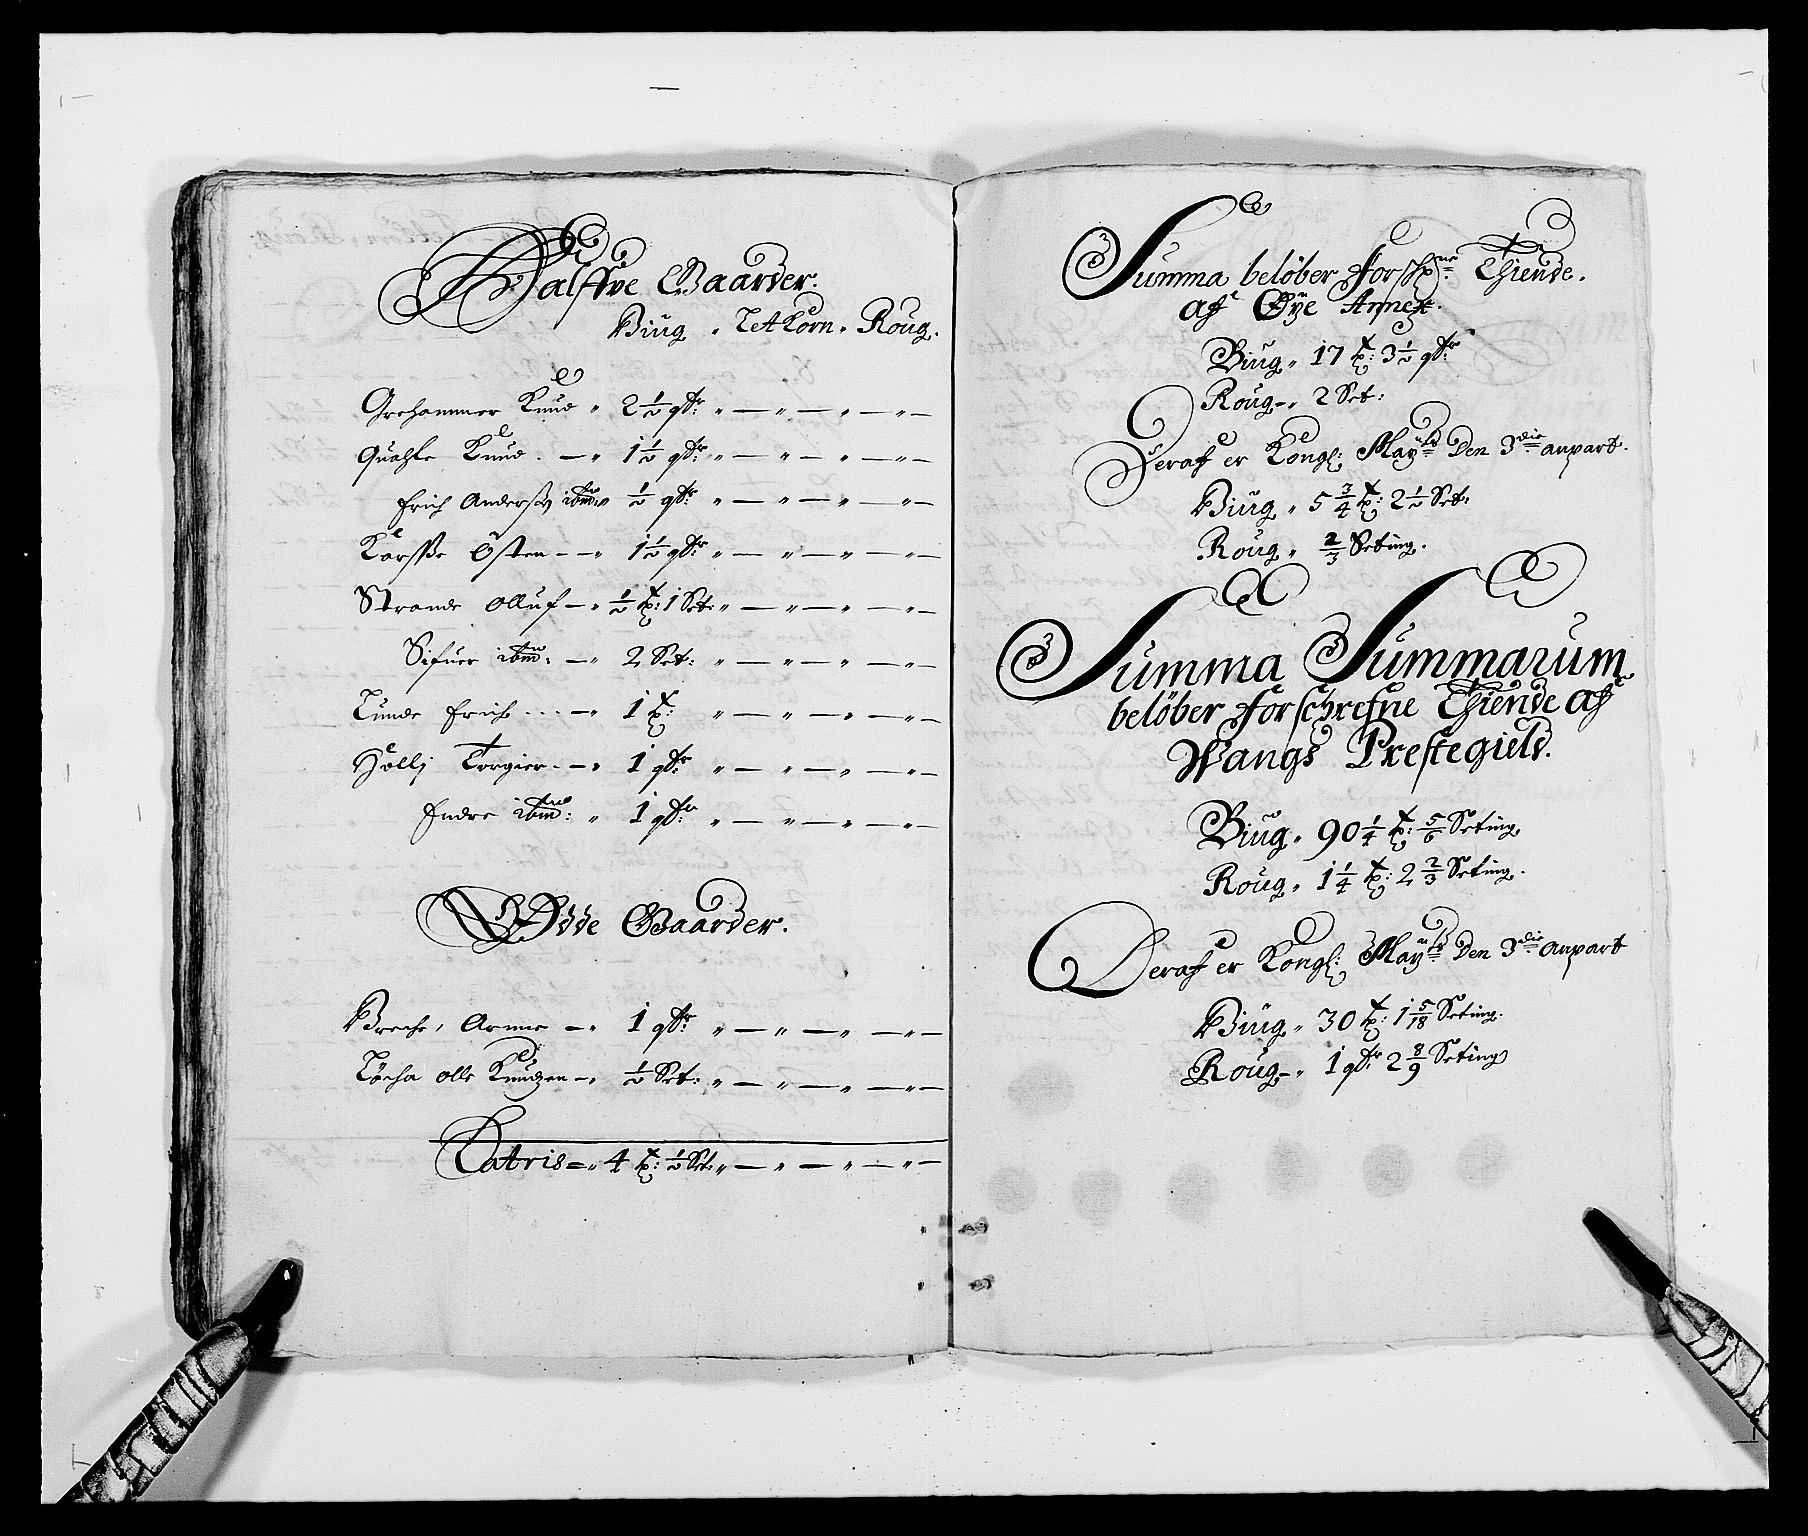 Halffve Gaarder.
Biug „ LetKorn „ Roug.
Grehammer Knud „ 2½ qtr: „ — „ — „ — „ —
Quahle Knud . — „ 1½ qtr: „ — „ — „ — „ —
Erich Anderßøn ibm: „ ½ qtr: „ — „ — „ — „ —
Karsße Østen — „ 1½ qtr: „ — „ — „ — „ —
Strande Olluf — „ ½ t: 1 Set: „ — „ — „ — „ —
Sifuer ibm: — „ 2 Set: „ — „ — „ — „ —
Lunde Erich . . . — „ 1 t: „ — „ — „ — „ —
Hølli Torgier . — „ 1 qtr: „ — „ — „ — „ —
Endre ibm: „ 1 qtr: „ — „ — „ — „ —
Øde Gaarder.
Breche, Arnne — „ 1 qtr: „ — „ — „ — „ —
Olle Knudzen — „ ½ Set: „ — „ — „ — „ —
Latris = „ 4 t: ½ Set: „ — „ — „ — „ —
Summa beløber forschne Thiende.
Aff Øye Annex.
Biug „ 17 t: 3½ qtr:
Roug — „ 2 Set:
Deraff er Kongl: Mayts Den 3die anpart.
Biug „ 5¾ t: 2½ Set:
Roug „ ⅔ Seting.
Summa Summarum
beløber forschrefne Thiende aff
Wangs Prestegield.
Biug „ 90¼ t: ⅚ Seting.
Roug „ 1¼ t: 2⅔ Seting.
Deraff er Kongl: Mayts Den 3die anpart
Biug „ 30 t: 1 5/18 Seting.
Roug — „ 1 qtr: 2 8/9 Seting